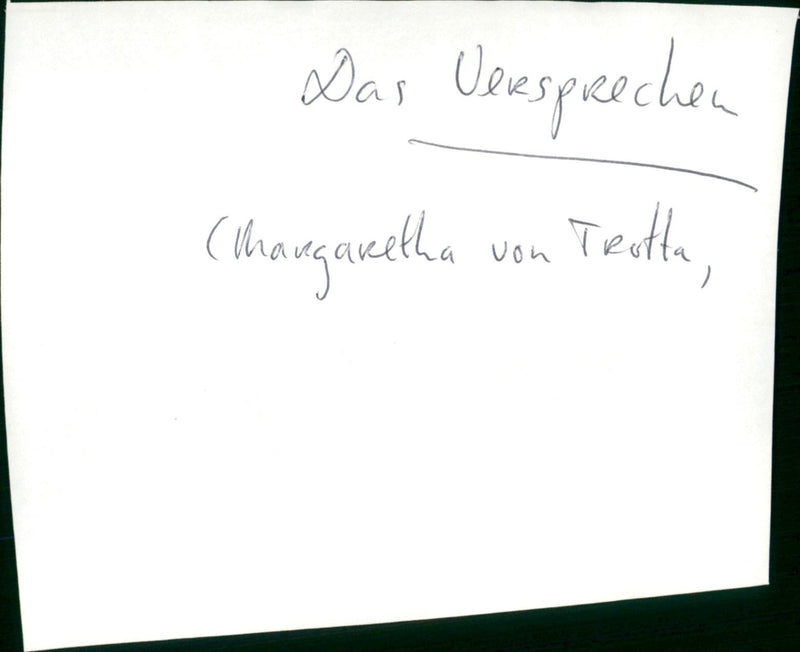 Das Versprechen
(Margaretha von Trotta,